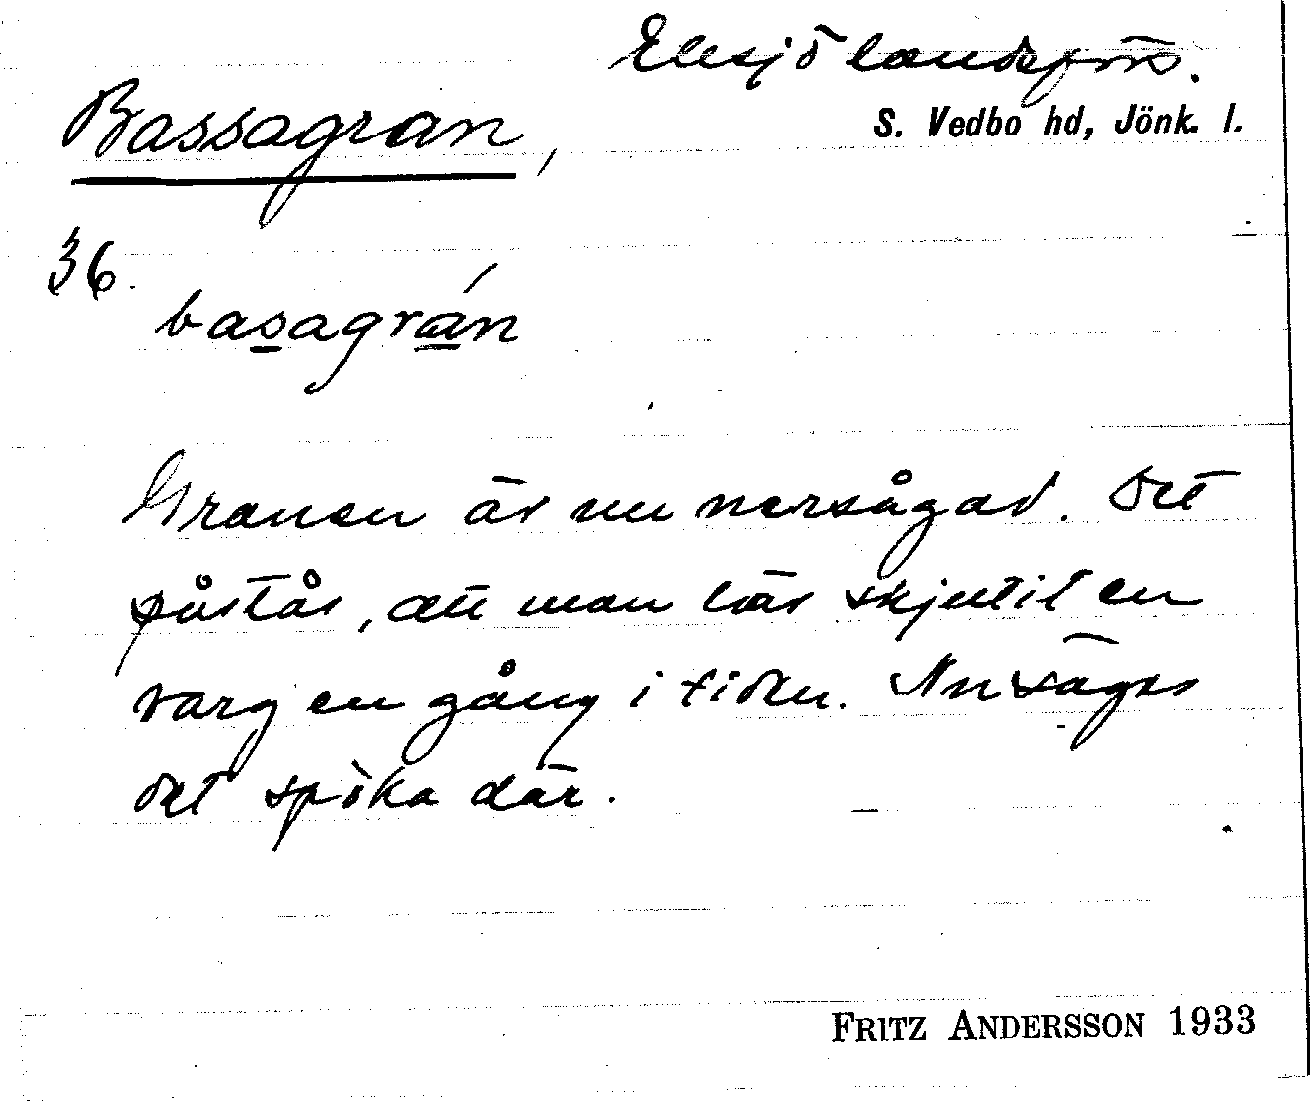 Eksjö landsförs.
S. Vedbo hd, Jönk. l.
Bassagran,
36.
basagrán
Granen är nu nersågad. Det
påstås, att man här skjutit en
varg en gång i tiden. Nu säges
det spöka där.
FRITZ ANDERSSON 1933